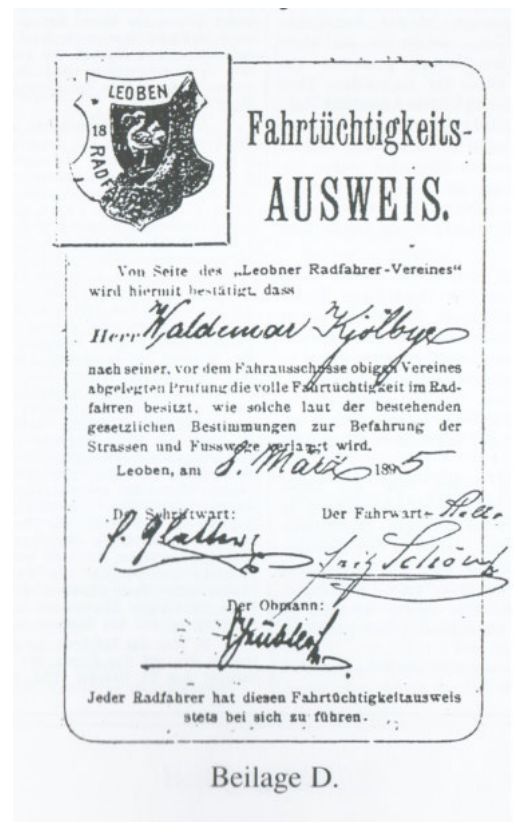 LEOBEN
18
RADF
Fahrtüchtigkeits-
AUSWEIS.
Von Seite des „Leobner Radfahrer-Vereines“
wird hiermit bestätigt, dass
Herr Waldemar Kjölbye
nach seiner, vor dem Fahrausschusse obigen Vereines
abgelegten Prüfung die volle Fahrtüchtigkeit im Rad-
fahren besitzt, wie solche laut der bestehenden
gesetzlichen Bestimmungen zur Befahrung der
Strassen und Fusswege verlangt wird.
Leoben, am 8. März 1895
Der Schriftwart:
Der Fahrwart-
Fritz
Der Obmann:
Jeder Radfahrer hat diesen Fahrtüchtigkeitausweis
stets bei sich zu führen.
Beilage D.